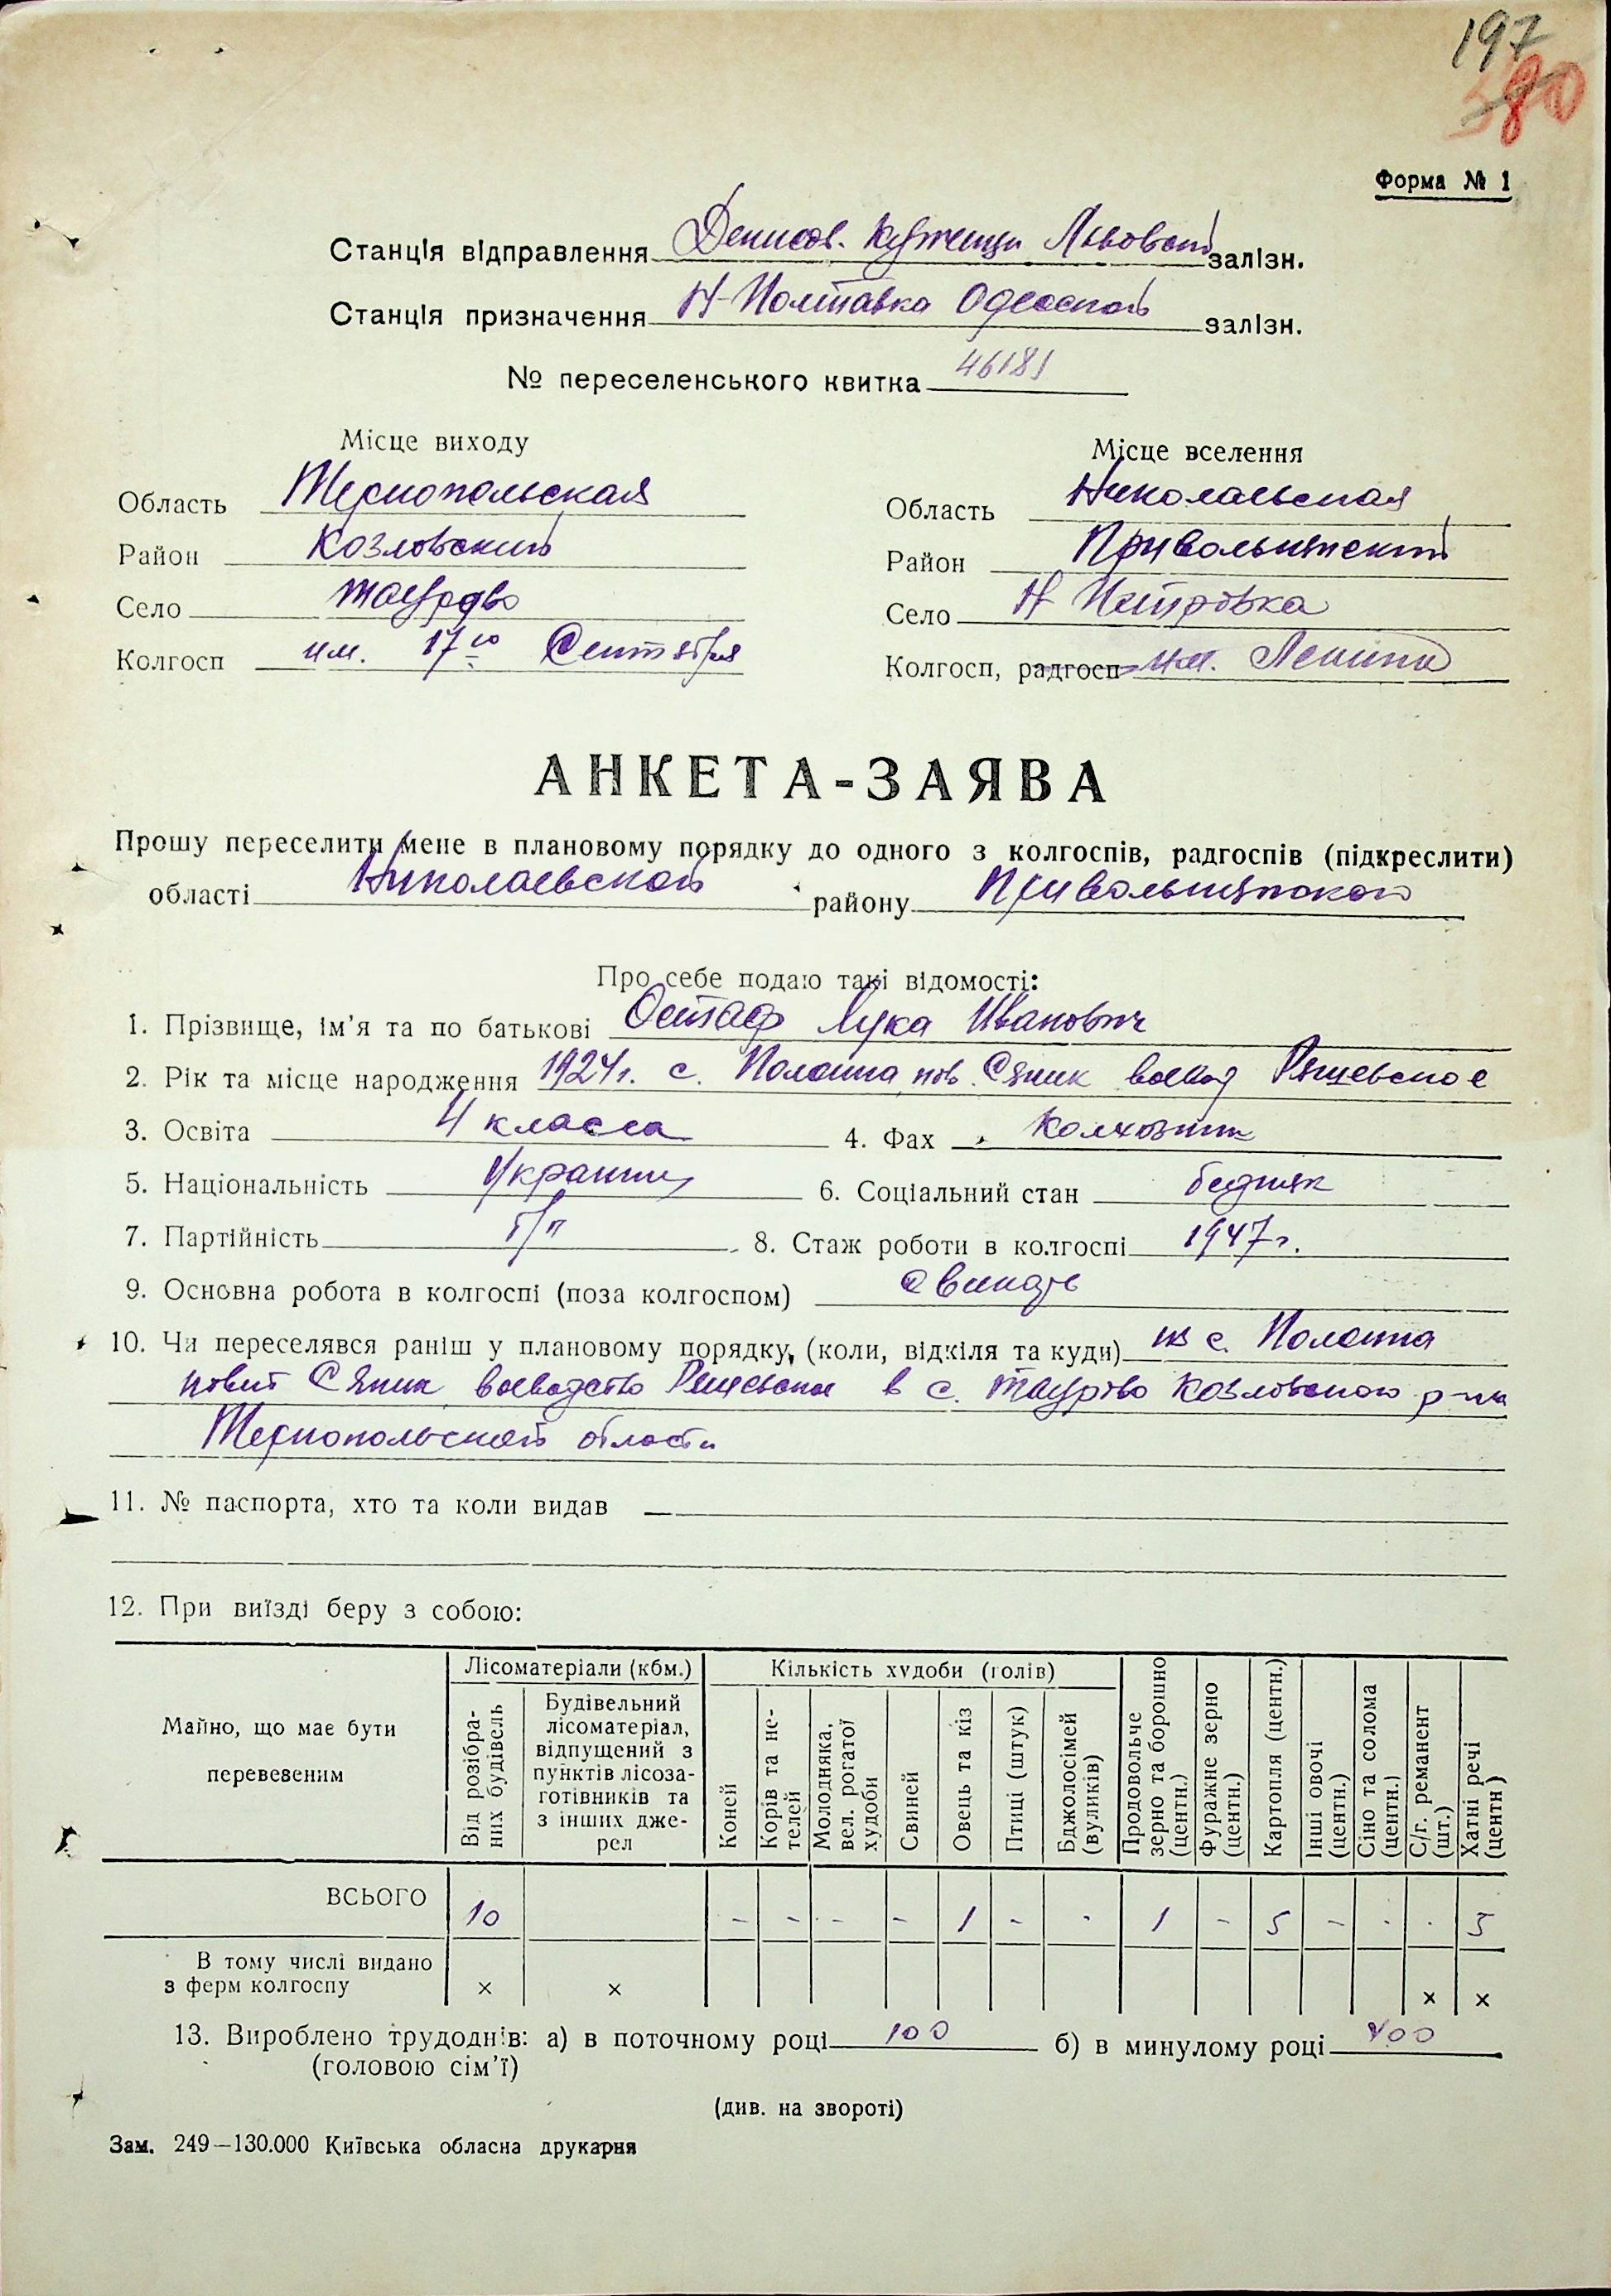 197
380
Форма № 1
Станція відправлення Денисов. Купчинцы Львовской залізн.
Станція призначення Н-Полтавка Одесской залізн.
№ переселенського квитка 46181
Місце виходу
Область Тернопольская
Район Козловский
Село Таурово
Колгосп им. 17го Сентября
Місце вселення
Область Николаевская
Район Привольнянский
Село Н Петровка
Колгосп, радгосп им. Ленина
АНКЕТА-ЗАЯВА
Прошу переселити мене в плановому порядку до одного з колгоспів, радгоспів (підкреслити)
області Николаевской району Привольнянского
Про себе подаю такі відомості:
1. Прізвище, ім'я та по батькові Остаф Лука Иванович
2. Рік та місце народження 1924г. с. Полонна пов. Сяник воевод Ряшевское
3. Освіта 4 класса 4. Фах Колхозник
5. Національність Украинец 6. Соціальний стан бедняк
7. Партійність б/п 8. Стаж роботи в колгоспі 1947г.
9. Основна робота в колгоспі (поза колгоспом) свинарь
10. Чи переселявся раніш у плановому порядку, (коли, відкіля та куди) из с. Полонна
повит Сяник воеводство Ряшевское в с. Таурово Козловского р-на
Тернопольской области
11. № паспорта, хто та коли видав
12. При виїзді беру з собою:
Майно, що має бути перевезеним
Лісоматеріали (кбм.)
Від розібраних будівель
Будівельний лісоматеріал, відпущений з пунктів лісозаготівників та з інших джерел
Кількість худоби (голів)
Коней
Корів та нетелей
Молодняка, вел. рогатої худоби
Свиней
Овець та кіз
Птиці (штук)
Бджолосімей (вуликів)
Продовольче зерно та борошно (центн.)
Фуражне зерно (центн.)
Картопля (центн.)
Інші овочі (центн.)
Сіно та солома (центн.)
С/г. реманент (шт.)
Хатні речі (центн)
ВСЬОГО 10 - - - - 1 - - 1 - 5 - - - 5
В тому числі видано
з ферм колгоспу × × × ×
13. Вироблено трудоднів: а) в поточному році 100 б) в минулому році 400
(головою сім'ї)
(див. на звороті)
Зам. 249—130.000 Київська обласна друкарня